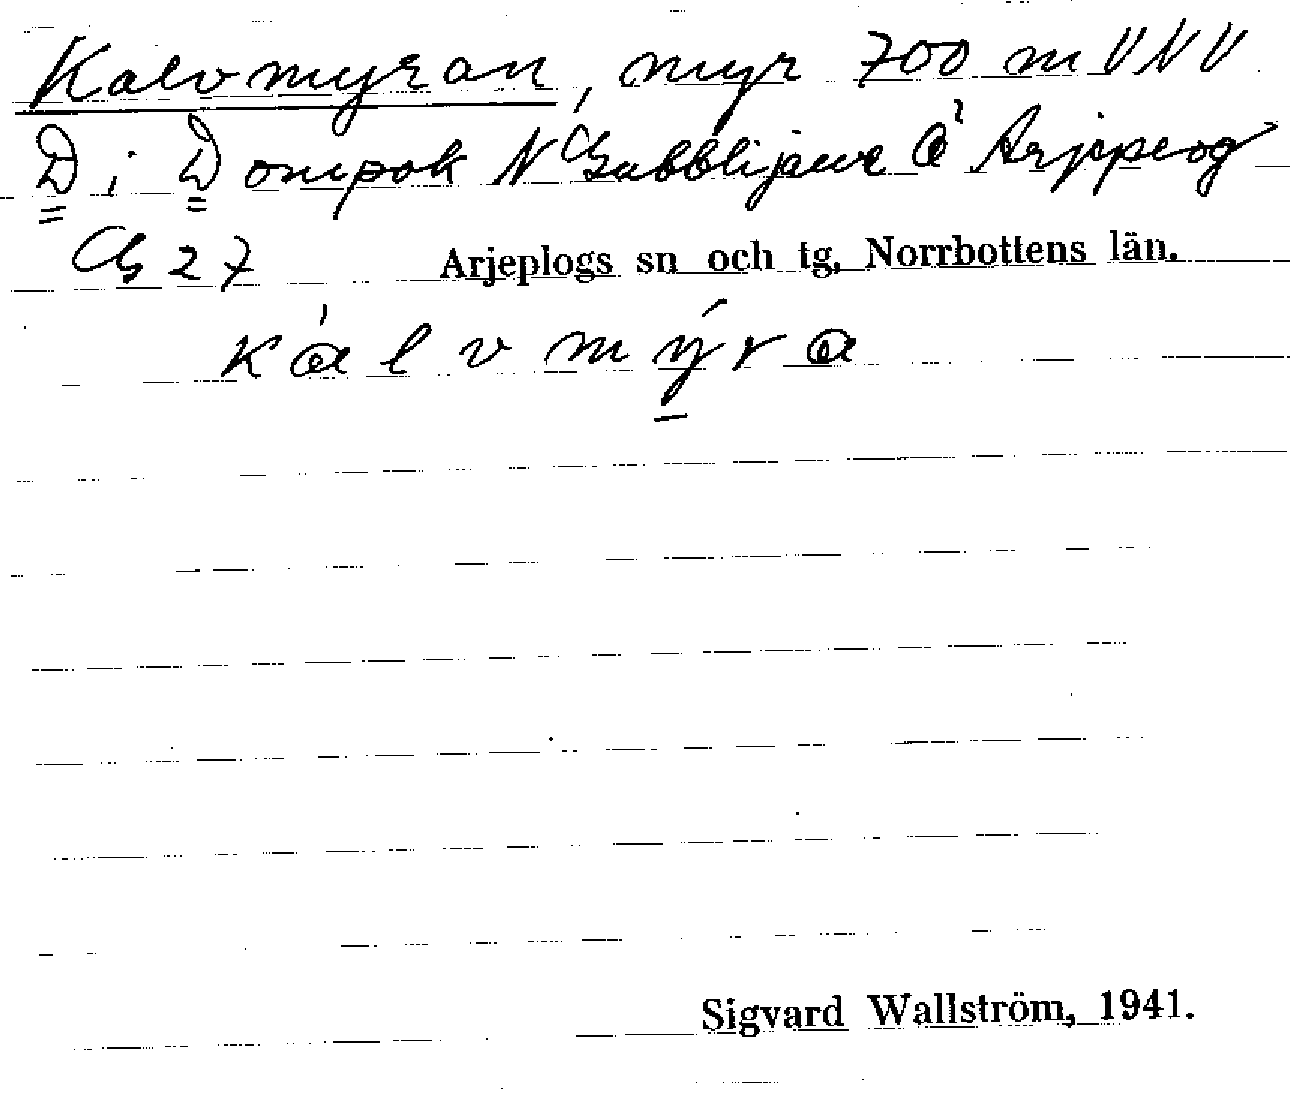 Kalvmyran, myr 700 m VNV
D i Dompok N Gubblijaure å Arjeplog
G 27 Arjeplogs sn och tg, Norrbottens län.
kálvmýra
Sigvard Wallström, 1941.